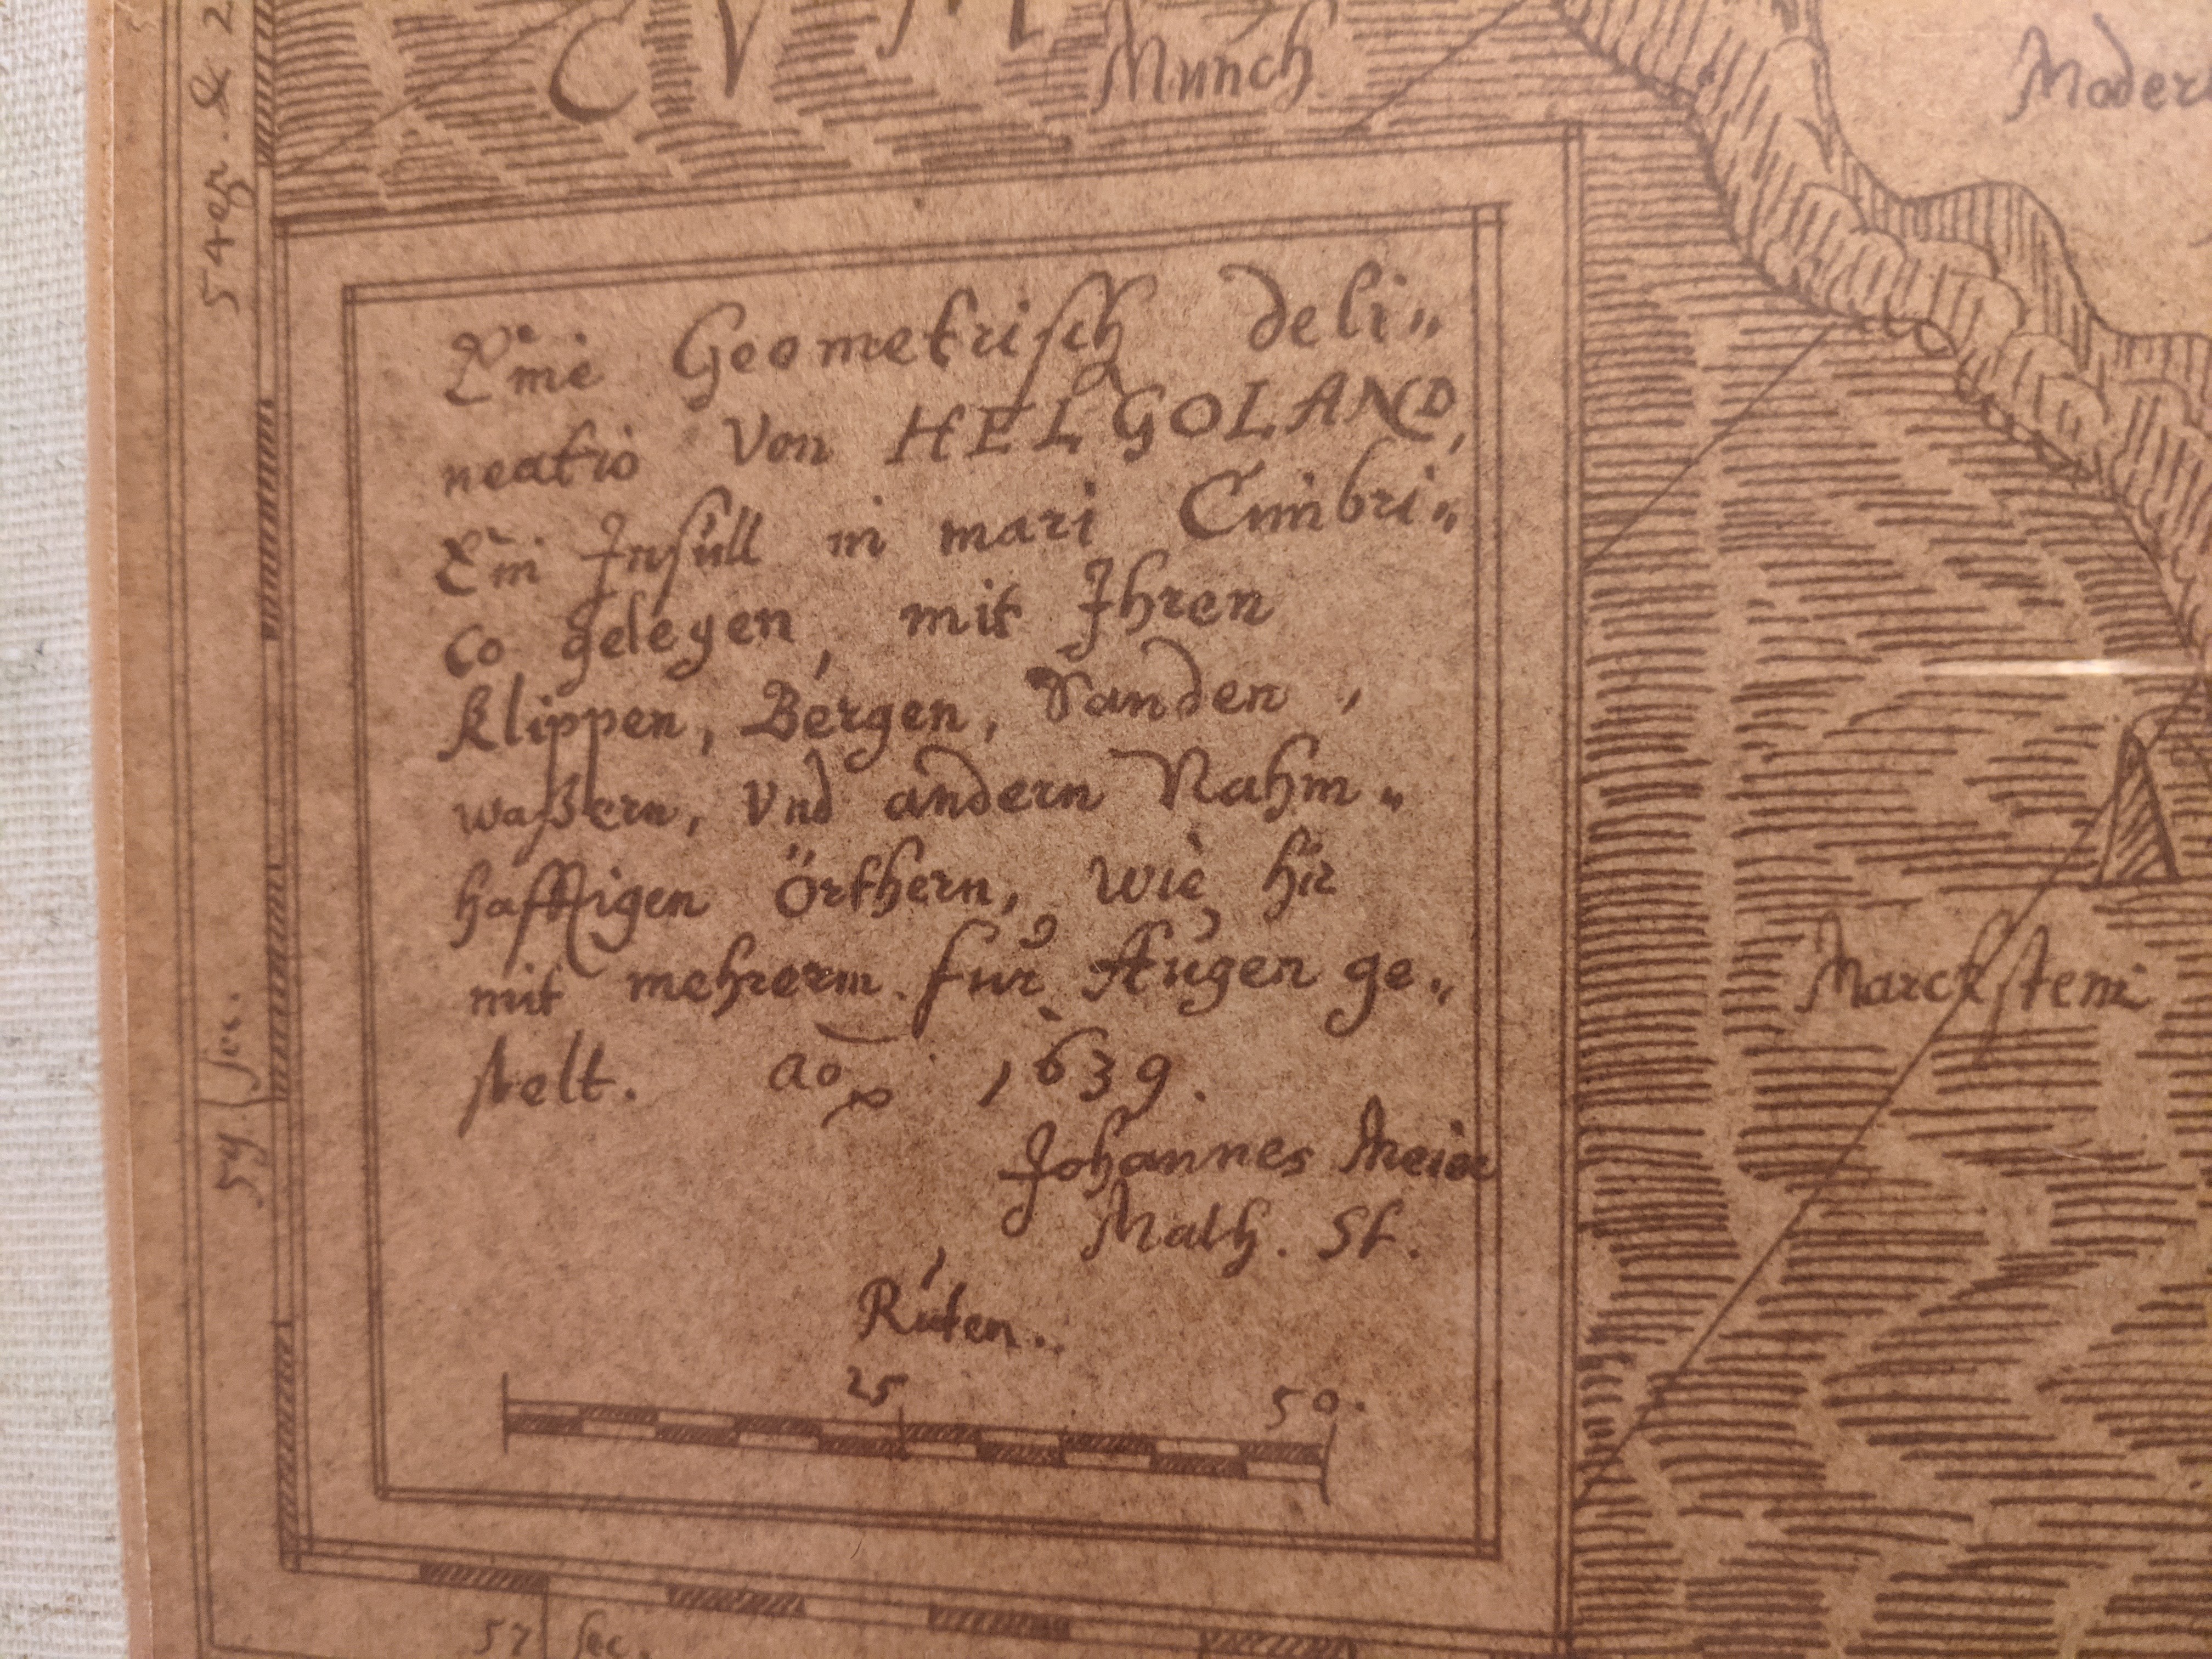 Münch
Moder
54 gr. & 2
Eine Geometrisch deli„
neatio Von HELGOLAND,
Ein Insull in mari Cimbri„
co gelegen, mit Ihren
klippen, Bergen, Sanden,
waßern, Vnd andern Nahm„
hafftigen Örthern, wie hir
mit mehrerm für Augen ge„
stelt. ao 1639.
Johannes Meier
Math. St.
Marckstein
Ruten..
25 50.
59 sec.
57 sec.